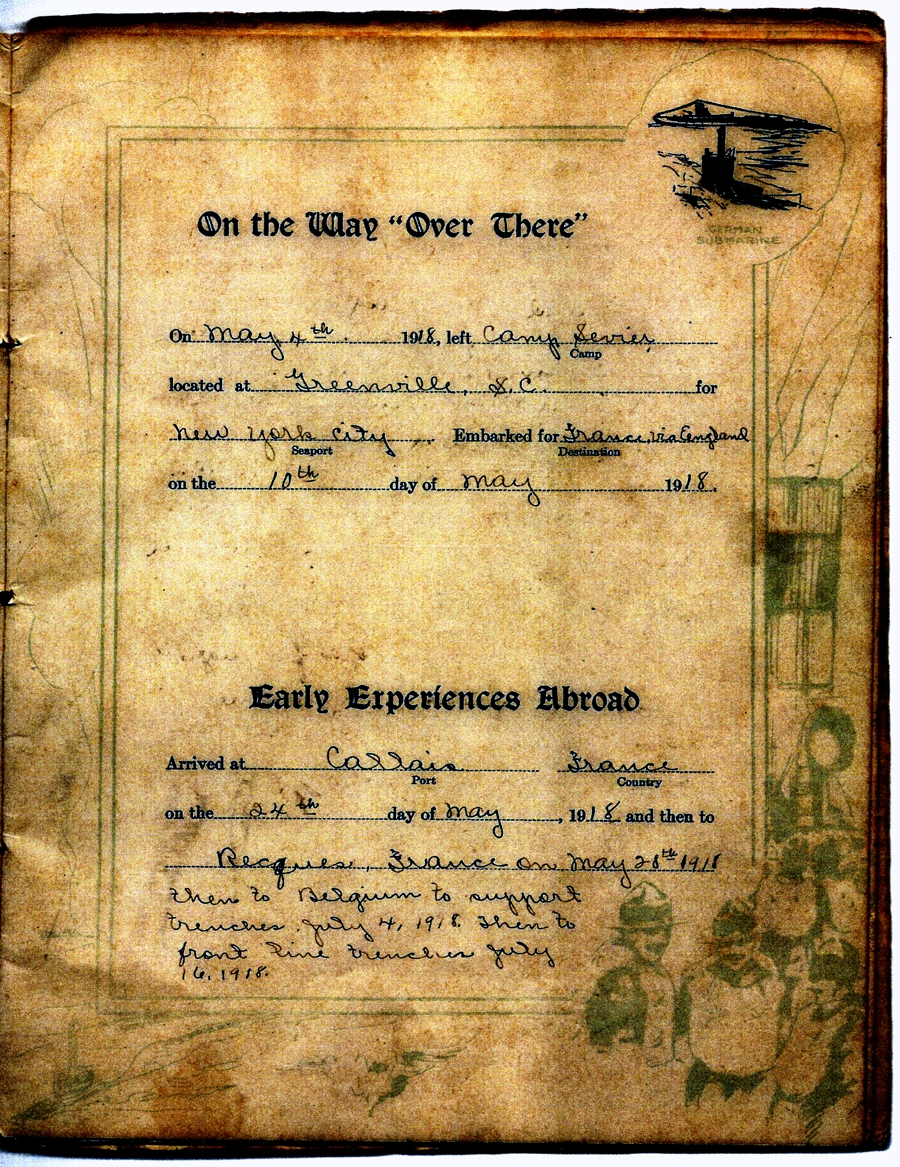 GERMAN
SUBMARINE
On the Way “Over There”
On May 4th 1918, left Camp Sevier
Camp
located at Greenville, S.C. for
New York City Embarked for France, via England
Seaport Destination
on the 10th day of May 1918.
Early Experiences Abroad
Arrived at Callais France
Port Country
on the 24th day of May, 1918 and then to
Recques, France on May 28th 1918
then to Belgium to support
trenches July 4, 1918. Then to
front line trenches July
16, 1918.